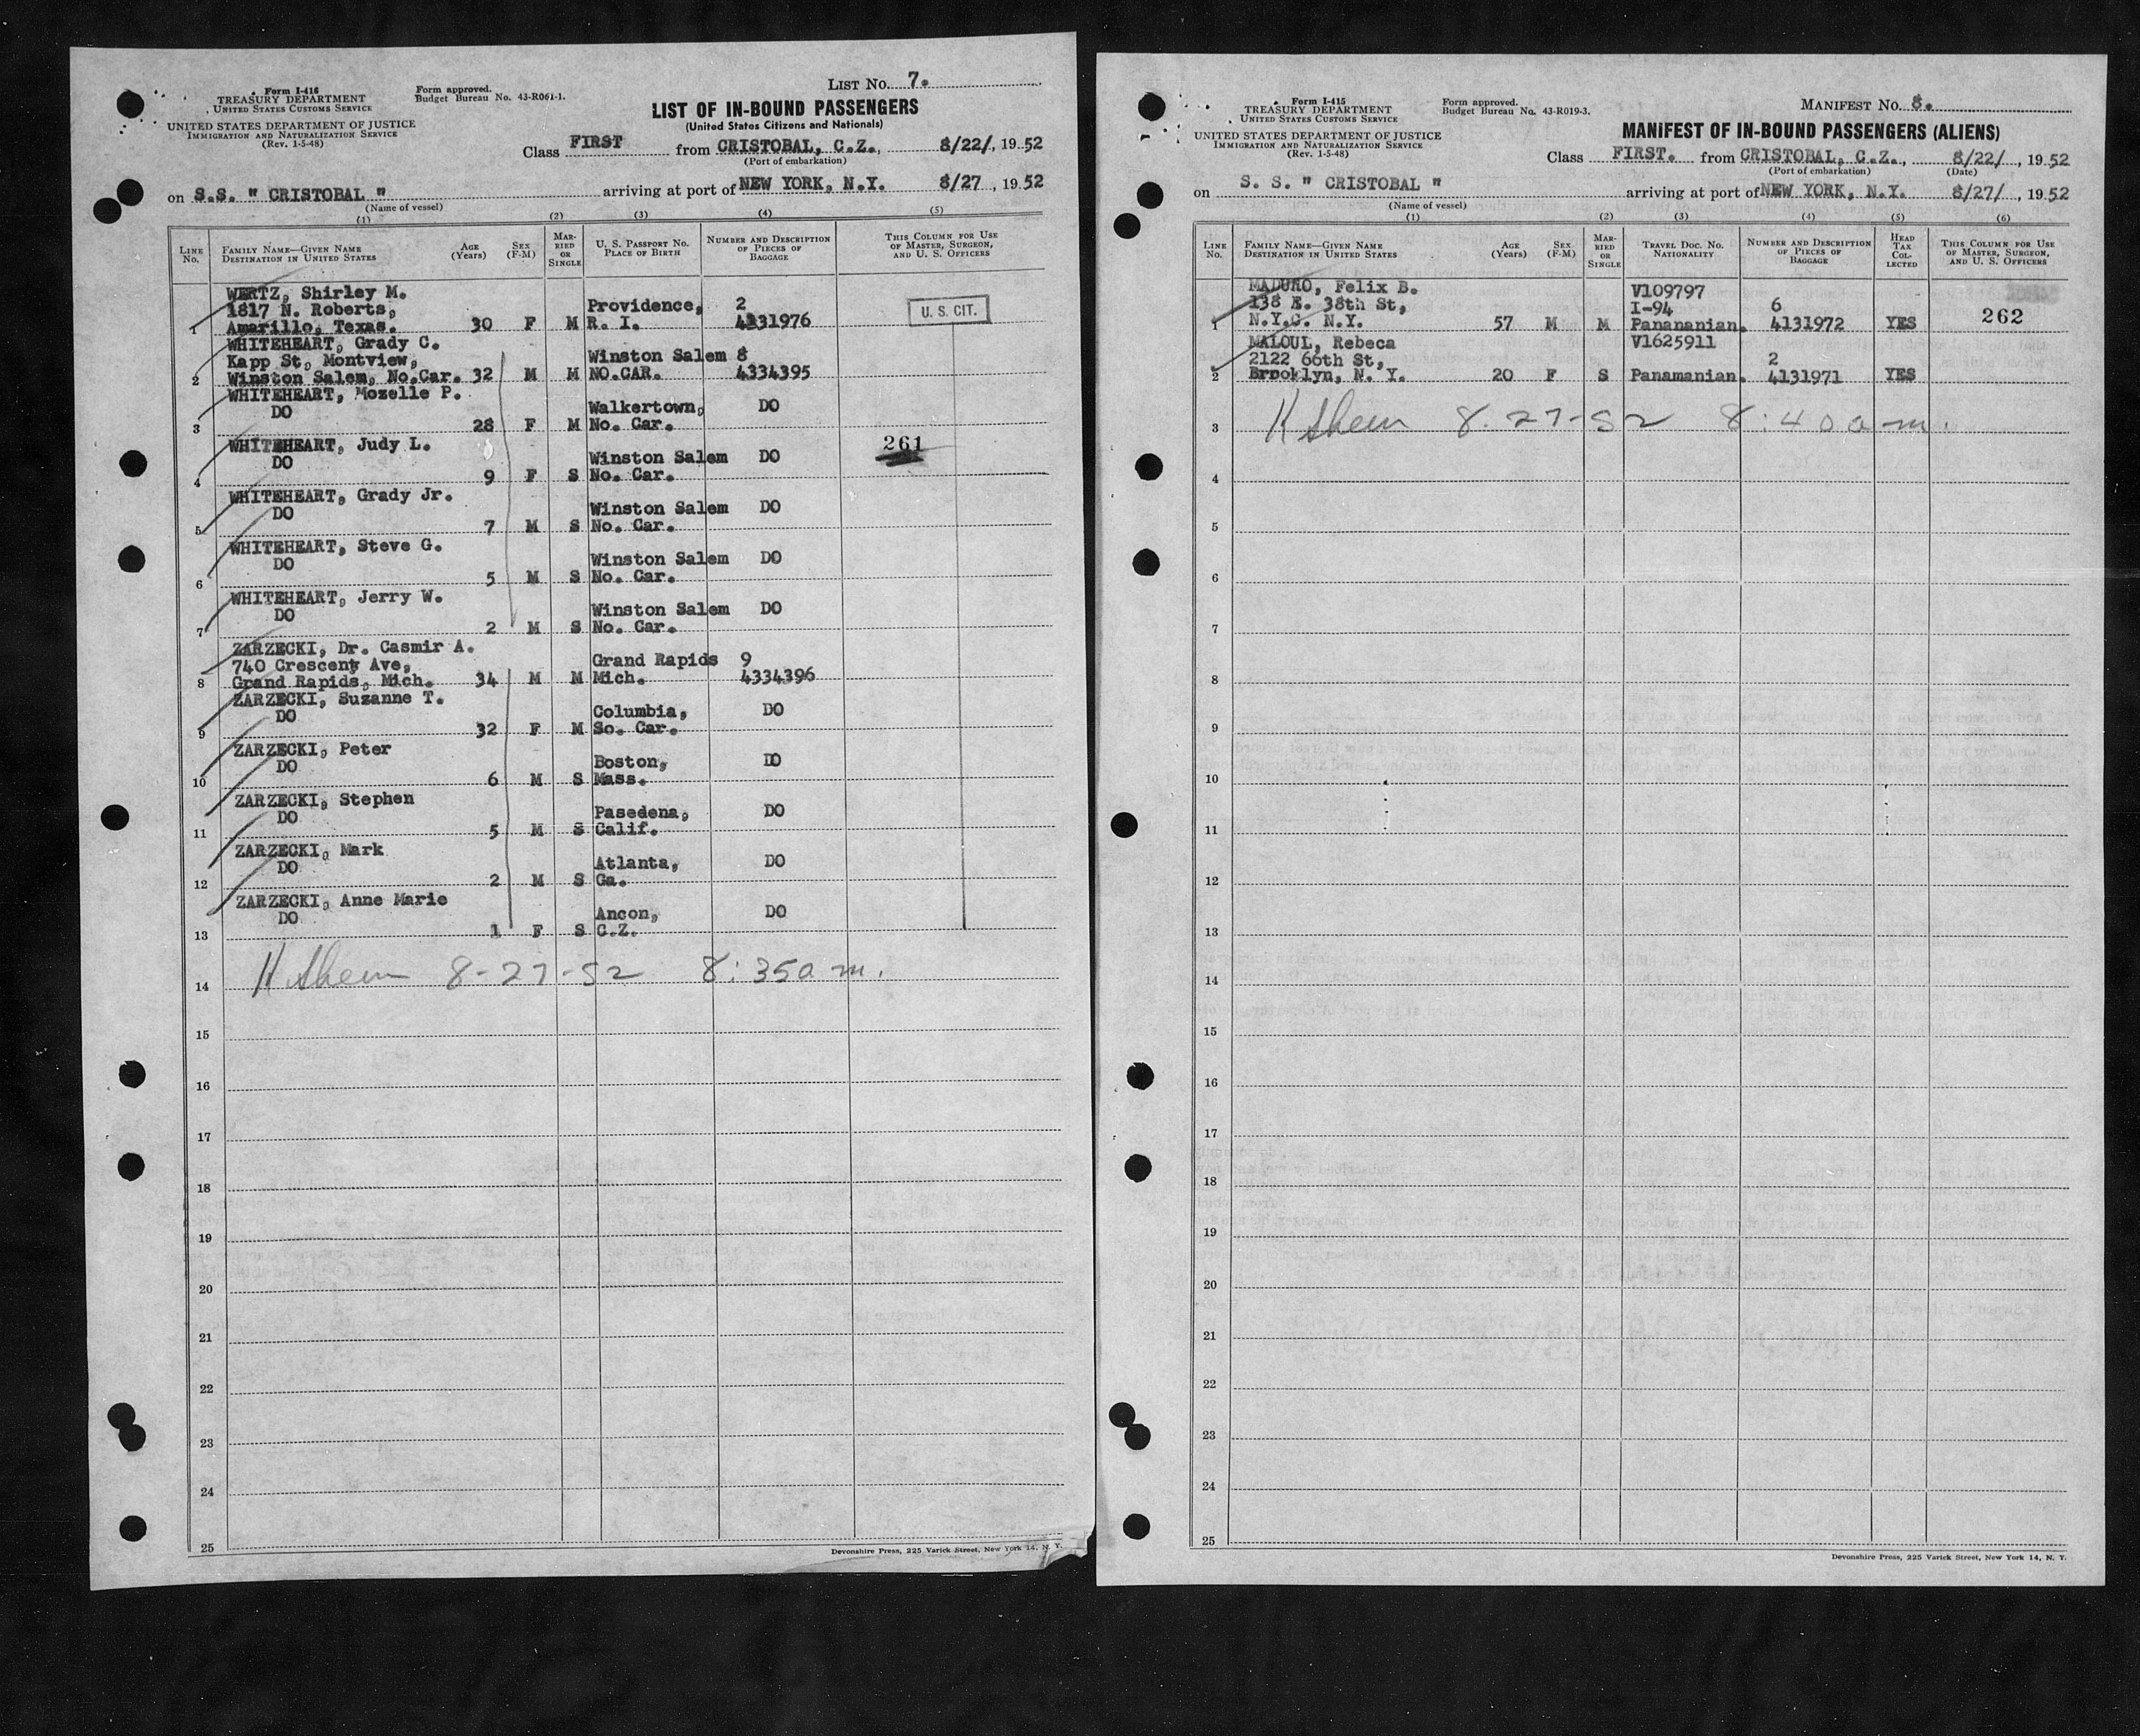 Form I-416
TREASURY DEPARTMENT
UNITED STATES CUSTOMS SERVICE
UNITED STATES DEPARTMENT OF JUSTICE
IMMIGRATION AND NATURALIZATION SERVICE
(Rev. 1-5-48)
Form approved.
Budget Bureau No. 43-R061-1.
LIST No. 7.
LIST OF IN-BOUND PASSENGERS
(United States Citizens and Nationals)
Class FIRST from CRISTOBAL, C.Z., 8/22/, 1952
(Port of embarkation)
on S.S. " CRISTOBAL " arriving at port of NEW YORK, N.Y. 8/27, 1952
(Name of vessel)
(1) (2) (3) (4) (5)
LINE No. FAMILY NAME—GIVEN NAME DESTINATION IN UNITED STATES AGE (Years) SEX (F-M) MARRIED OR SINGLE U. S. PASSPORT No. PLACE OF BIRTH NUMBER AND DESCRIPTION OF PIECES OF BAGGAGE THIS COLUMN FOR USE OF MASTER, SURGEON, AND U. S. OFFICERS
WERTZ, Shirley M.
1817 N. Roberts, Providence, 2 U. S. CIT.
1 Amarillo, Texas. 30 F M R. I. 4131976
WHITEHEART, Grady C.
Kapp St, Montview, Winston Salem 8
2 Winston Salem, No.Car. 32 M M NO.CAR. 4334395
WHITEHEART, Mozelle P.
DO Walkertown, DO
3 28 F M No. Car.
WHITEHEART, Judy L. 261
DO Winston Salem DO
4 9 F S No. Car.
WHITEHEART, Grady Jr.
DO Winston Salem DO
5 7 M S No. Car.
WHITEHEART, Steve G.
DO Winston Salem DO
6 5 M S No. Car.
WHITEHEART, Jerry W.
DO Winston Salem DO
7 2 M S No. Car.
ZARZECKI, Dr. Casmir A.
740 Crescent Ave, Grand Rapids 9
8 Grand Rapids, Mich. 34 M M Mich. 4334396
ZARZECKI, Suzanne T.
DO Columbia, DO
9 32 F M So. Car.
ZARZECKI, Peter
DO Boston, DO
10 6 M S Mass.
ZARZECKI, Stephen
DO Pasedena, DO
11 5 M S Calif.
ZARZECKI, Mark
DO Atlanta, DO
12 2 M S Ga.
ZARZECKI, Anne Marie
DO Ancon, DO
13 1 F S C.Z.
14 8-27-52 8:35 a m.
15
16
17
18
19
20
21
22
23
24
25
Devonshire Press, 225 Varick Street, New York 14, N. Y.
Form I-415
TREASURY DEPARTMENT
UNITED STATES CUSTOMS SERVICE
UNITED STATES DEPARTMENT OF JUSTICE
IMMIGRATION AND NATURALIZATION SERVICE
(Rev. 1-5-48)
Form approved.
Budget Bureau No. 43-R019-3.
MANIFEST No. 8.
MANIFEST OF IN-BOUND PASSENGERS (ALIENS)
Class FIRST. from CRISTOBAL, C.Z., 8/22/, 1952
(Port of embarkation) (Date)
on S. S. " CRISTOBAL " arriving at port of NEW YORK, N.Y. 8/27/, 1952
(Name of vessel)
(1) (2) (3) (4) (5) (6)
LINE No. FAMILY NAME—GIVEN NAME DESTINATION IN UNITED STATES AGE (Years) SEX (F-M) MARRIED OR SINGLE TRAVEL DOC. NO. NATIONALITY NUMBER AND DESCRIPTION OF PIECES OF BAGGAGE HEAD TAX COLLECTED THIS COLUMN FOR USE OF MASTER, SURGEON, AND U. S. OFFICERS
MADURO, Felix B. V109797
138 E. 38th St, I-94 6 262
1 N.Y.C. N.Y. 57 M M Panananian. 4131972 YES
MALOUL, Rebeca V1625911
2122 66th St, 2
2 Brooklyn, N. Y. 20 F S Panamanian. 4131971 YES
3 8-27-52 8:40 a m.
4
5
6
7
8
9
10
11
12
13
14
15
16
17
18
19
20
21
22
23
24
25
Devonshire Press, 225 Varick Street, New York 14, N. Y.